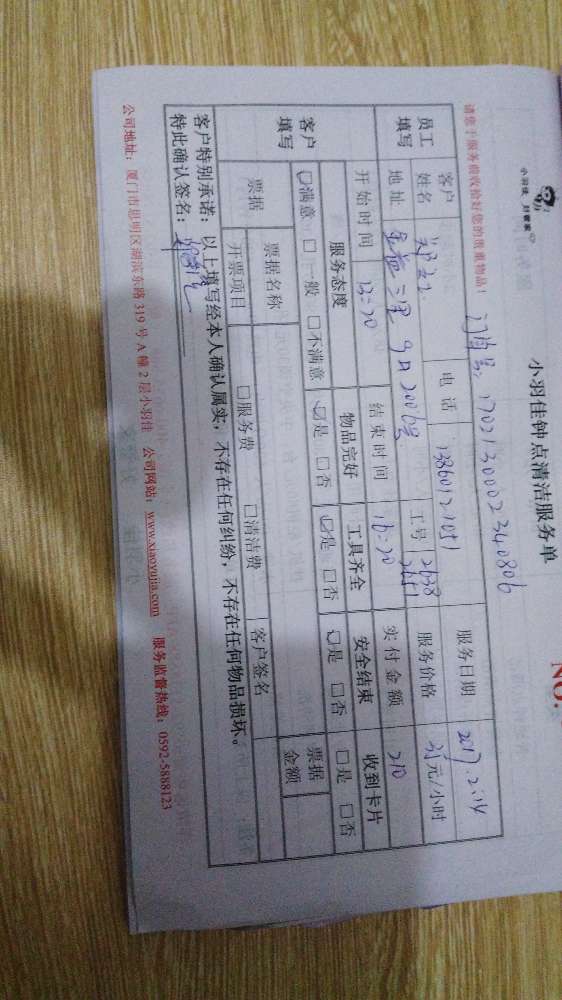 小羽佳 好管家
小羽佳钟点清洁服务单
NO.
请您于服务前收拾好您的贵重物品!
订单号: 17021300002340806
员工填写 客户姓名 电话 13860121051 工号 2638 服务日期 2017.2.14
地址 金益三里 9日2006号 服务价格 35元/小时
开始时间 13:20 结束时间 16:20 实付金额 210
客户填写 服务态度 物品完好 工具齐全 安全结束 收到卡片
☑满意 □一般 □不满意 ☑是 □否 ☑是 □否 ☑是 □否 □是 □否
票据 票据名称 客户签名 票据金额
开票项目 □服务费 □清洁费
客户特别承诺:以上填写经本人确认属实,不存在任何纠纷,不存在任何物品损坏。
特此确认签名:
公司地址:厦门市思明区湖滨东路 319 号 A 幢 2 层小羽佳 公司网站:www.xiaoyujia.com 服务监督热线:0592-5888123